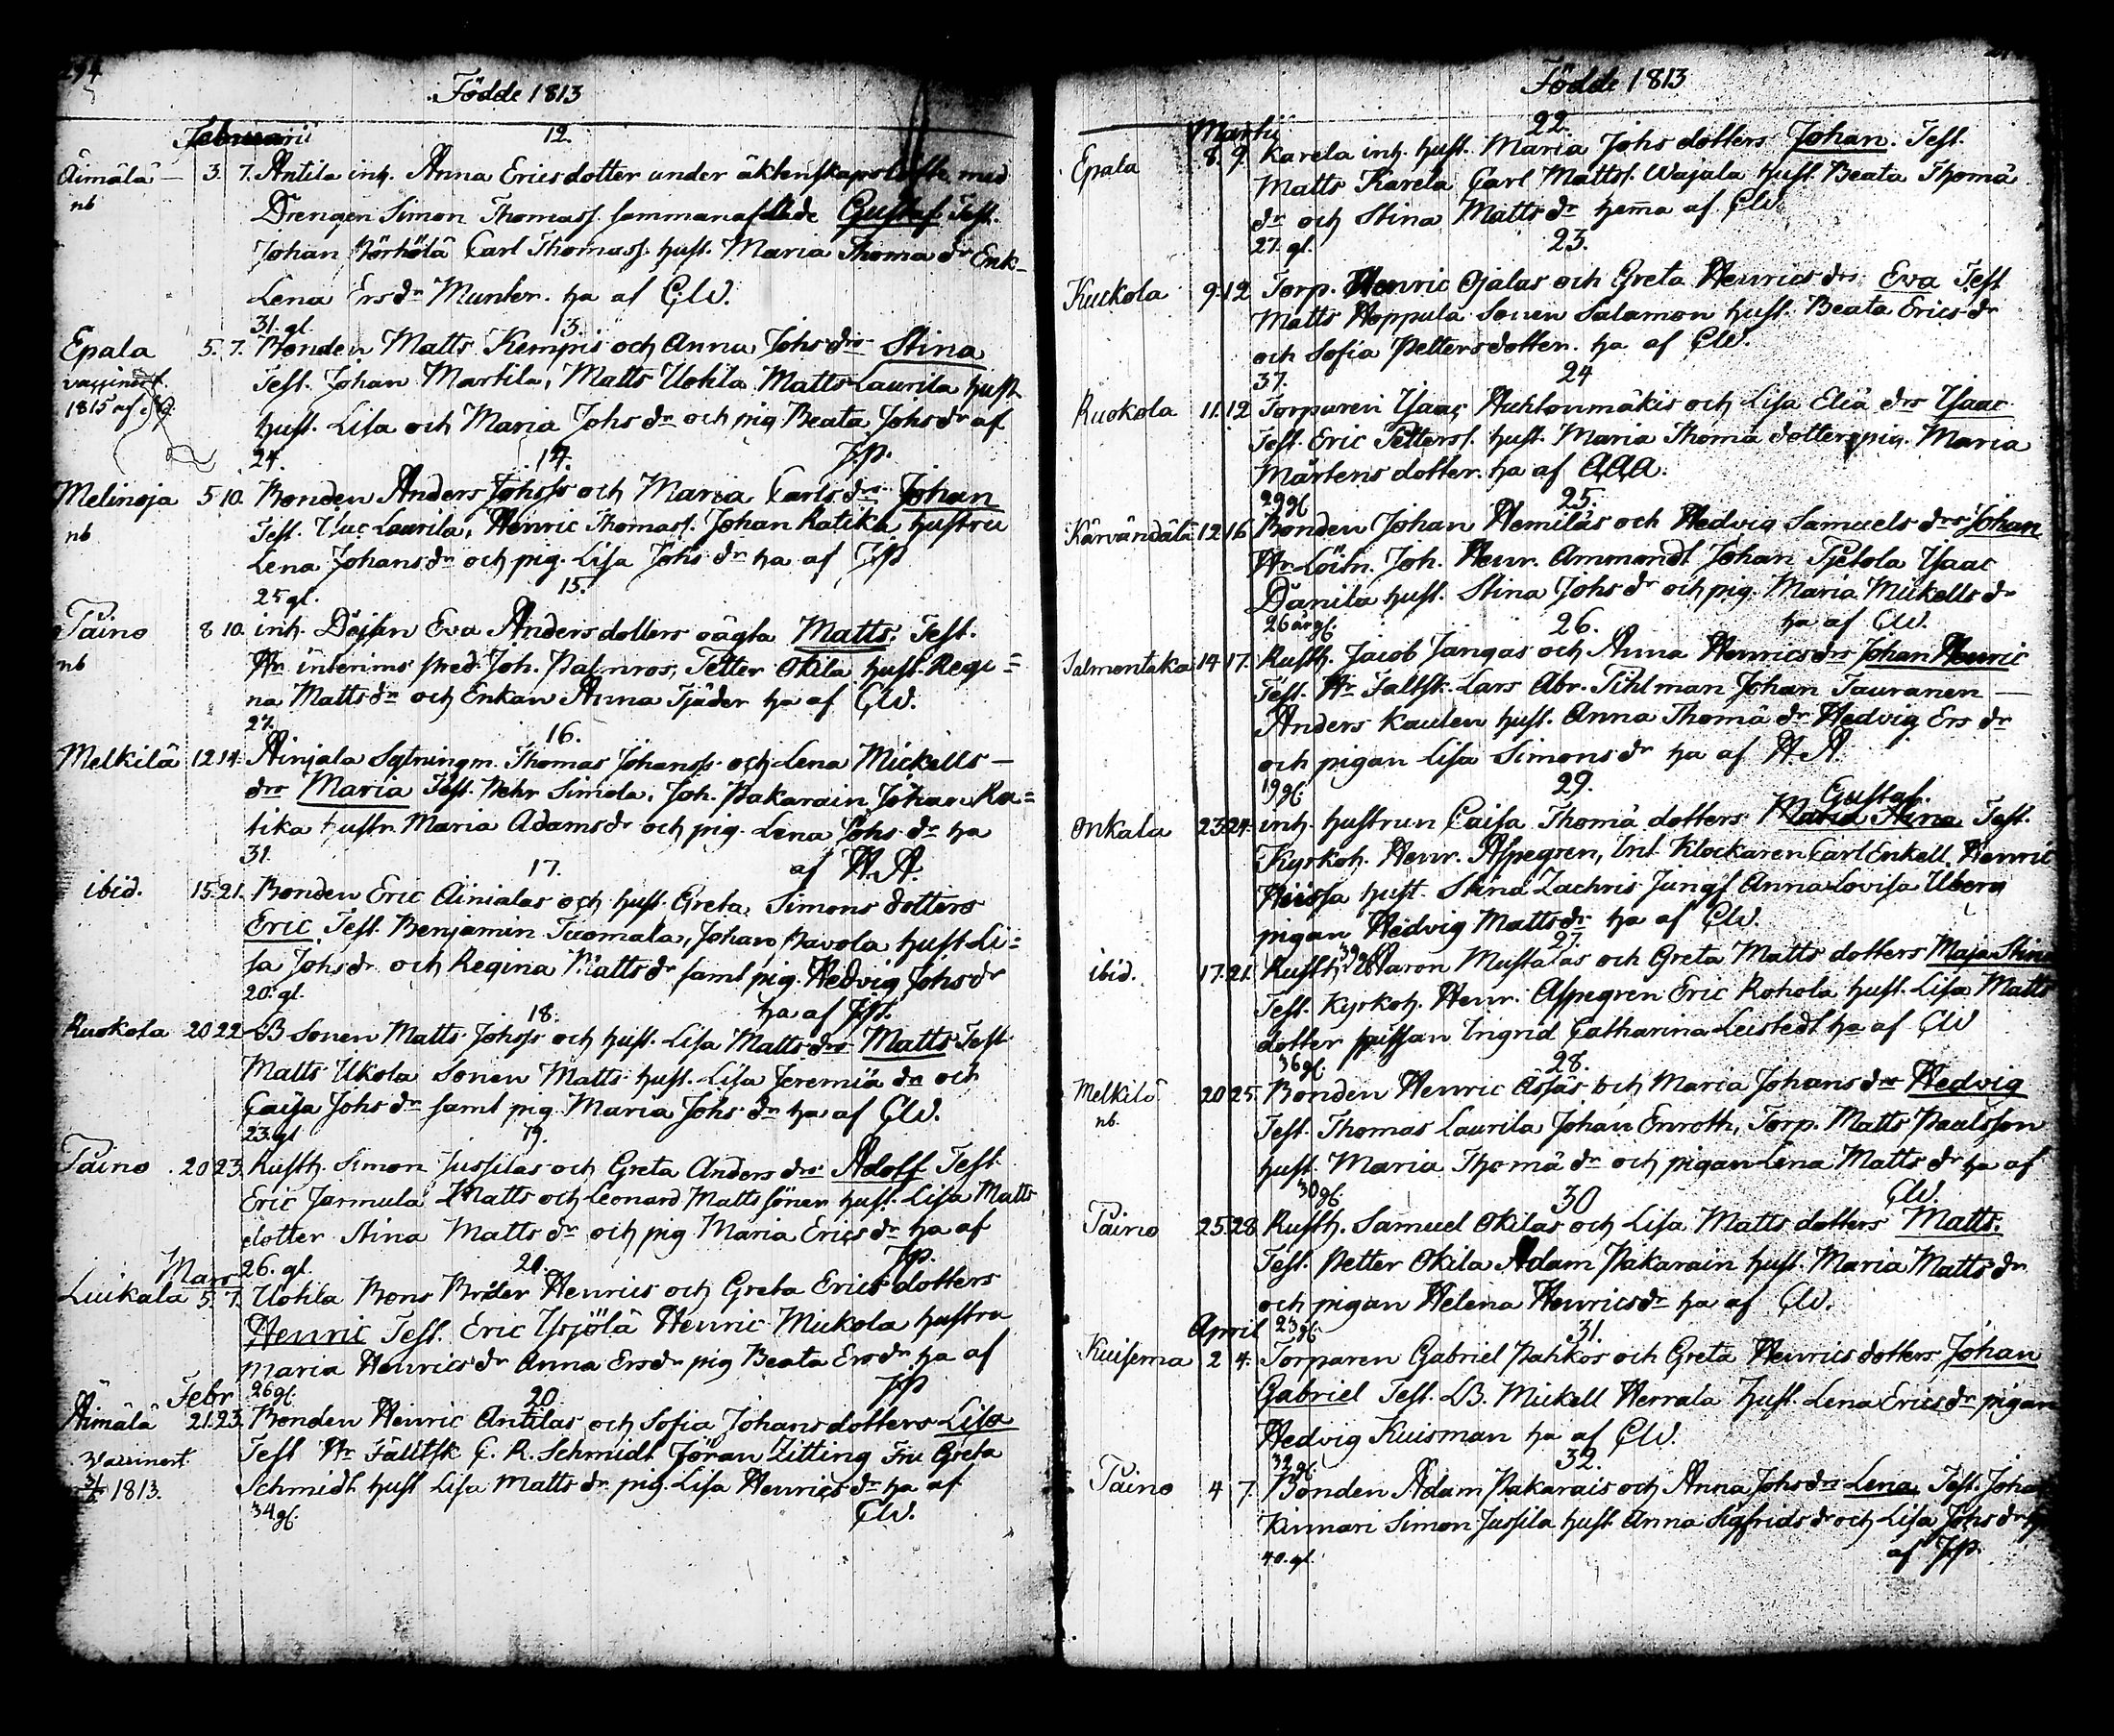 294
Födde 1813
Februarii
12.
Äimälä — 3. 7. Antila inh. Anna Ericsdotter under äktenskapslöfte med
nb
Drengen Simon Thomass. sammanaflade Gustaf Test.
Johan Hörhölä Carl Thomass. hust. Maria Thoma dr Enk-
Lena Ersdr Munter. ha af GW.
31. gl.
13.
Epala 5. 7. Bonden Matts Kempis och Anna Johsdrs Stina
vaccinerd
Test. Johan Martila, Matts Uotila Matts Laurila hust
1815 af
hust. Lisa och Maria Johsdr och pig Beata Johsdr af
24.
14.
JP.
Melinoja 5 10. Bonden Anders Johss och Maria Carlsdrs Johan
nb
Test. Isac Laurila, Henric Thomass. Johan Ratika hustru
Lena Johansdr och pig. Lisa Johsdr ha af JP
25 gl.
15.
Taino 8 10. inh. Döfsen Eva Andersdotters oägta Matts. Test.
nb
Hr interims pred. Joh. Palmros, Petter Okila hust. Regi=
na Mattsdr och Enkan Anna Tjäder ha af GW.
27.
16.
Melkilä 12 14. Ainjala Sytningm. Thomas Johanss och Lena Mickells—
drs Maria Test. Pehr Simola, Joh. Pakarain Johan Ra=
tika hustr. Maria Adamsdr och pig. Lena Johs dr ha
31.
17.
af H.A.
ibid. 15 21. Bonden Eric Ainialas och hust. Greta Simons dotters
Eric Test. Benjamin Tuomala, Johan Pavola hust. Li=
sa Johsdr och Regina Mattsdr samt pig. Hedvig Johsdr
20. gl.
18.
ha af JP.
Ruokola 20 22 LB Sonen Matts Johss och hust. Lisa Mattsdrs Matts Test
Matts Ukola Sonen Matts hust. Lisa Jeremiä dr och
Caisa Johsdr samt pig. Maria Johs dr ha af GW.
23. gl
19.
Taino 20 23. Rusth. Simon Jussilas och Greta Andersdrs Adolf Test.
Eric Jarmula Matts och Leonard Mattssöner hust. Lisa Matts
dotter Stina Matts dr och pig Maria Ericsdr ha af
Mars 26. gl.
21.
JP.
Luikala 5. 7. Uotila Bons Broder Henrics och Greta Ericsdotters
Henric Test. Eric Yrjölä Henric Mickola hustru
Maria Henricsdr Anna Ersdr pig Beata Ersdr ha af
Febr 26 gl.
20
JP
Äimälä 21. 23. Bonden Henric Antilas och Sofia Johansdotters Lisa
vaccinert
Test Hr Fältsk C. R. Schmidt Jöran Zitting Fru Greta
1813.
Schmidt hust Lisa Mattsdr pig. Lisa Henricsdr ha af
34 gl.
GW.
Födde 1813
Martii
22.
Epala 8. 9. Karela inh. hust. Maria Johs dotters Johan. Test.
Matts Karela Carl Mattss. Wajala hust. Beata Thomä
dr och Stina Matts dr hemma af GW.
27. gl.
23.
Kuckola 9. 12 Torp. Henric Ojalas och Greta Henricsdrs Eva Test
Matts Hoppula Sonen Salamon hust. Beata Erics dr
och Sofia Pettersdotter. ha af GW.
37.
24
Ruokola 11. 12 Torparen Isaac Huhtonmäkis och Lisa Eliä drs Isaac
Test. Eric Petterss. hust. Maria Thomä dotter, pig. Maria
Mårtensdotter. ha af AAA.
29 gl
25.
Kärvändälä 12 16 Bonden Johan Hemiläs och Hedvig Samuels drs Johan
Hr Löitn. Joh. Henr. Ammondt Johan Pjetola Isaac
Danila hust. Stina Johsdr och pig. Maria Mickells dr
26 år gl.
26.
ha af GW.
Salmentaka 14 17. Rusth. Jacob Jangas och Anna Henricsdrs Johan Henric
Test. Hr Faltsk. Lars Abr. Tihlman Johan Tauranen —
Anders Kaulen hust. Anna Thomä dr Hedvig Ers dr
och pigan Lisa Simonsdr ha af H A.
19 gl.
29.
Gustaf.
Onkala 23. 24. inh. hustrun Caisa Thomä dotters Maria Stina Test.
Kyrkoh. Henr. Aspegren, Unt Klockaren Carl Enkell, Henric
hust. Stina Zachris Jungf Anna Lovisa Uberg
pigan Hedvig Mattsdr ha af GW.
27.
39 gl
ibid. 17. 21. Rusth. Aaron Mustalas och Greta Matts dotters Maja Stina
Test. Kyrkoh. Henr. Aspegren Eric Rohola hust. Lisa Matts
dotter Ingrid Catharina Leistedt ha af GW
36 gl.
28.
Melkilä 20 25. Bonden Henric Assas och Maria Johansdrs Hedvig
nb.
Test. Thomas Laurila Johan Enroth, Torp. Matts Paulsson
hust. Maria Thomä dr och pigan Lena Matts dr ha af
30 gl.
30
GW.
Taino 25. 28 Rusth. Samuel Okilas och Lisa Matts dotters Matts.
Test. Petter Okila Adam Pakarain hust. Maria Matts dr
och pigan Helena Henricsdr ha af GW.
April 23 gl.
31.
Kuisema 2 4. Torparen Gabriel Pahkos och Greta Henricsdotters Johan
Gabriel Test. LB. Mickell Herrala hust. Lena Ericsdr pigan
Hedvig Kuisman ha af GW.
32 gl.
32.
Taino 4 7 Bonden Adam Pakarais och Anna Johsdrs Lena Test. Johan
Kinnari Simon Jussila hust. Anna Sigfrids dr och Lisa Johsdr
40. gl.
af JP.